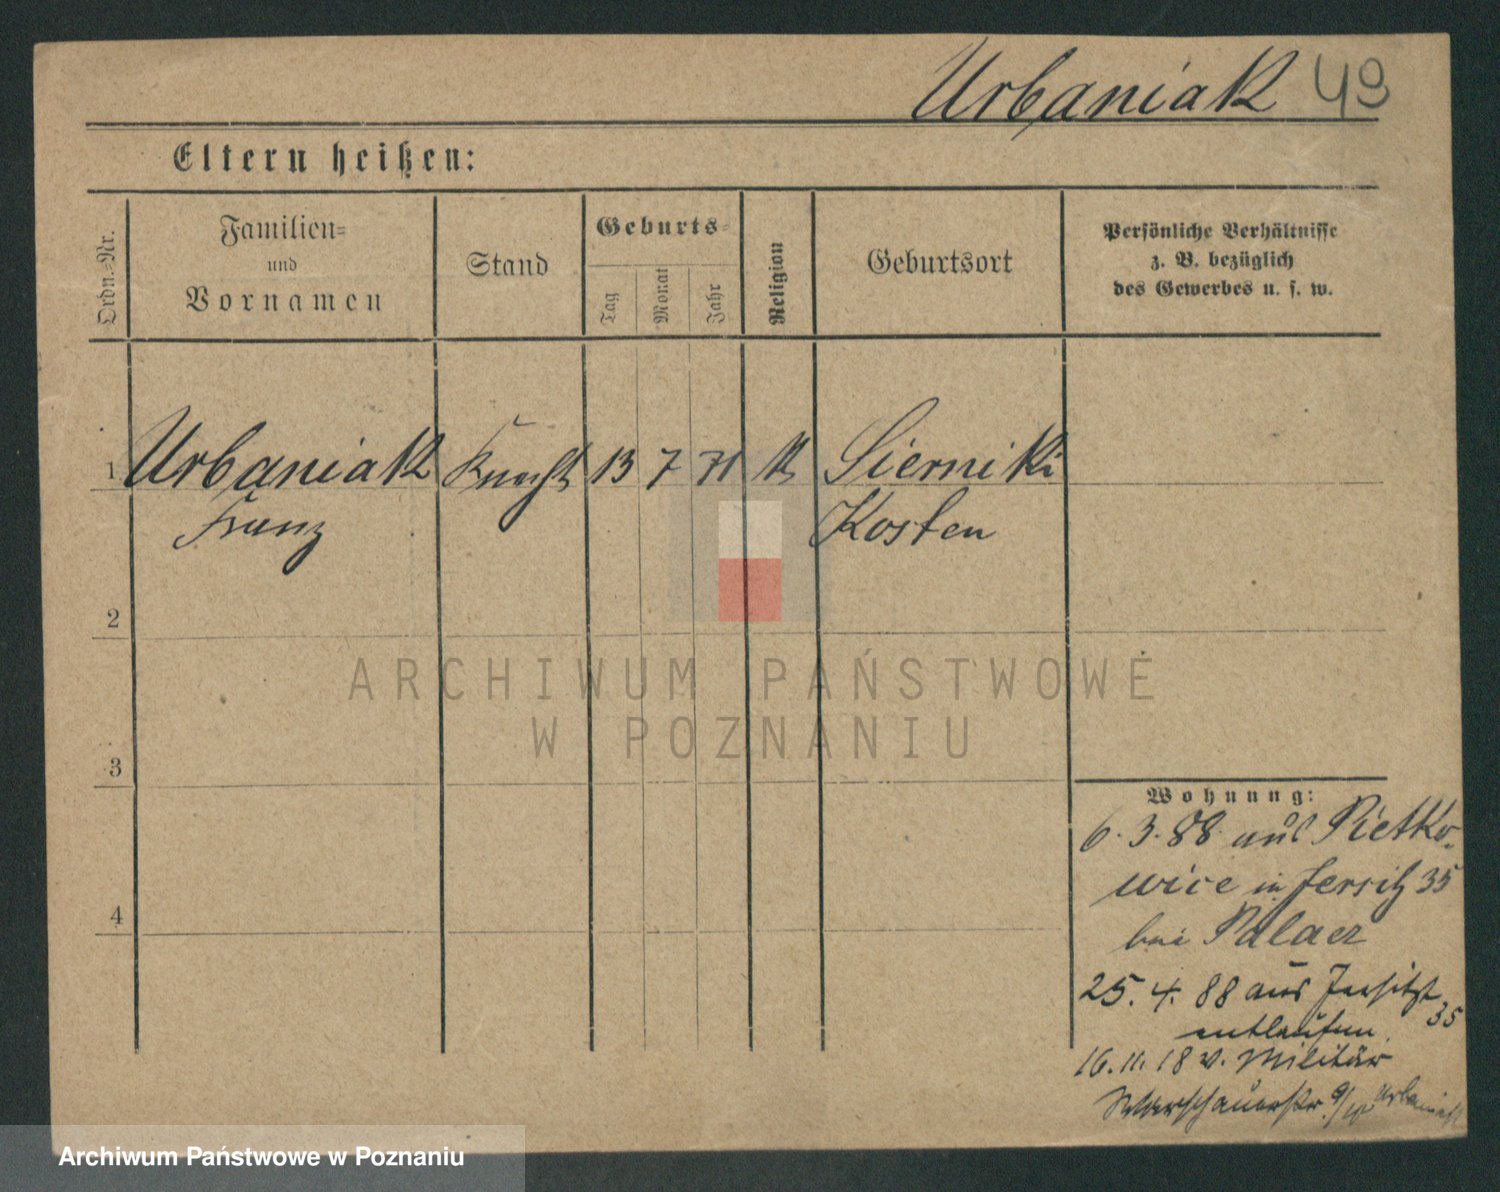 Urbaniak 49
Eltern heißen:
Ordn.-Nr.
Familien-
und
Vornamen
Stand
Geburts-
Tag
Monat
Jahr
Religion
Geburtsort
Persönliche Verhältnisse
z. B. bezüglich
des Gewerbes u. s. w.
1 Urbaniak Knecht 13 7 71 k Sierniki
Franz Kosten
2
3
4
ARCHIWUM PAŃSTWOWE
W POZNANIU
Wohnung:
6. 3. 88 aus Pietko-
wice in Jersitz 35
bei Palacz
25. 4. 88 aus Jersitz 35
entlaufen
16. 11. 18 v. Militär
Warschauerstr. 9/ Urbaniak
Archiwum Państwowe w Poznaniu